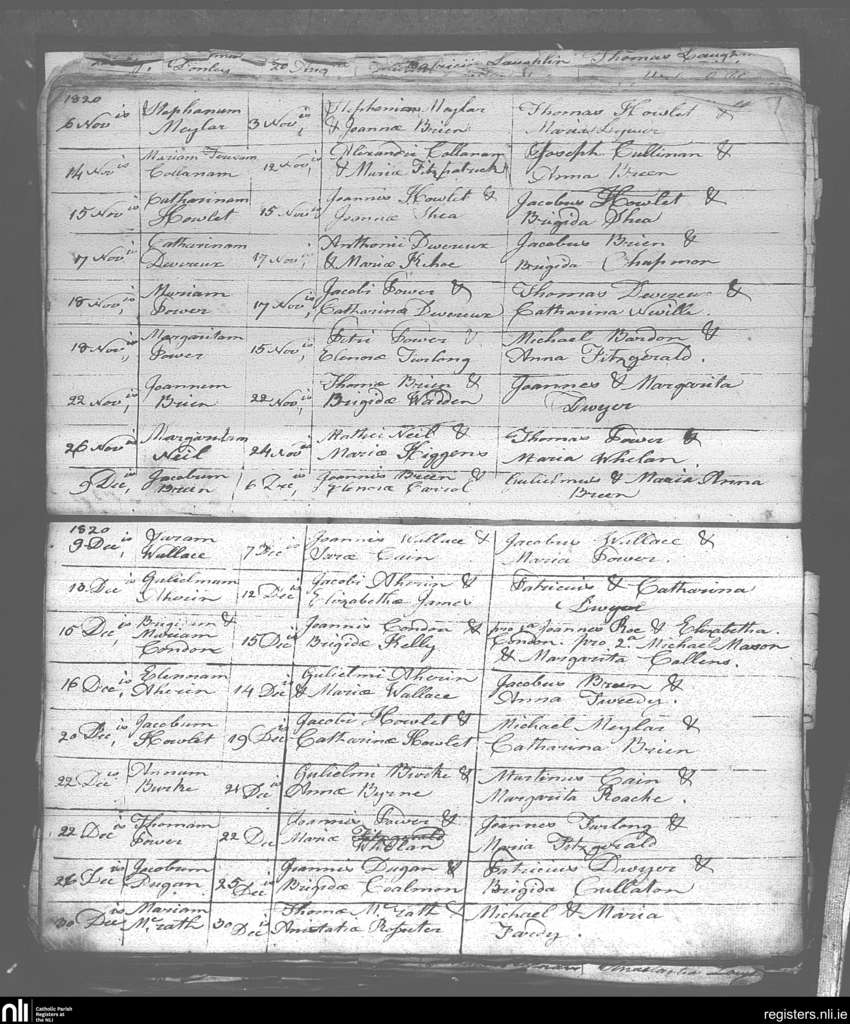 Donley 20 Aug Laughlin Thomas
1820
6 Nov is Stephanum Meylar 3 Nov is Stepheni Meylar & Joannæ Brien Thomas Howlet & Maria
14 Nov is Mariam Collanam 12 Nov is Alexandri Collanan & Mariæ Fitzpatrick Joseph Cullinan & Anna Breen
15 Nov is Catharinam Howlet 15 Nov is Joannis Howlet & Joannæ Shea Jacobus Howlet & Brigida Shea
17 Nov is Catharinam Devereux 17 Nov is Anthonii Devereux & Mariæ Kehoe Jacobus Brien & Brigida Chapmon
18 Nov is Mariam Power 17 Nov is Jacobi Power & Catharinæ Devereux Thomas Devereux & Catharina Nevill.
18 Nov is Margaritam Power 15 Nov is Petri Power & Elenoræ Furlong Michael Bardon & Anna Fitzgerald.
22 Nov is Joannem Brien 22 Nov is Thomæ Brien & Brigidæ Wadden Joannes & Margarita Dwyer
26 Nov is Margaritam Neil 24 Nov is Mathei Neil & Mariæ Higgens Thomas Power & Maria Whelan.
9 Dec is Jacobum Breen 6 Dec is Joannis Breen & Elenoræ Carrol Gulielmus & Maria Anna Breen
1820
9 Dec is Saram Wallace 7 Dec is Joannis Wallace & Saræ Cain Jacobus Wallace & Maria Power.
13 Dec is Gulielmum Aherin 12 Dec is Jacobi Aherin & Elizabethæ James Patricius & Catharina Dwyer
15 Dec is Brigidam & Mariam Condon 15 Dec is Joannis Condon & Brigidæ Kelly pro 1a Joannes Roe & Elizabetha Condon. pro 2a Michael Mason & Margarita Callens.
16 Dec is Elennam Aherin 14 Dec is Gulielmi Aherin & Mariæ Wallace Jacobus Breen & Anna Tweedy.
20 Dec is Jacobum Howlet 19 Dec is Jacobi Howlet & Catharinæ Howlet Michael Meylar & Catharina Brien
22 Dec is Annam Burke 21 Dec is Gulielmi Burke & Annæ Byrne Martinus Cain & Margarita Roache.
22 Dec is Thomam Power 22 Dec Joannis Power & Mariæ Fitzgerald Whelan Joannes Furlong & Maria Fitzgerald
26 Dec is Jacobum Dugan 25 Dec is Joannis Dugan & Brigidæ Coalmon Patricius Dwyer & Brigida Cullaton
30 Dec is Mariam McGrath 30 Dec is Thomæ McGrath & Anistatiæ Rossiter Michael & Maria Fardy.
nli
Catholic Parish
Registers at
the NLI
registers.nli.ie